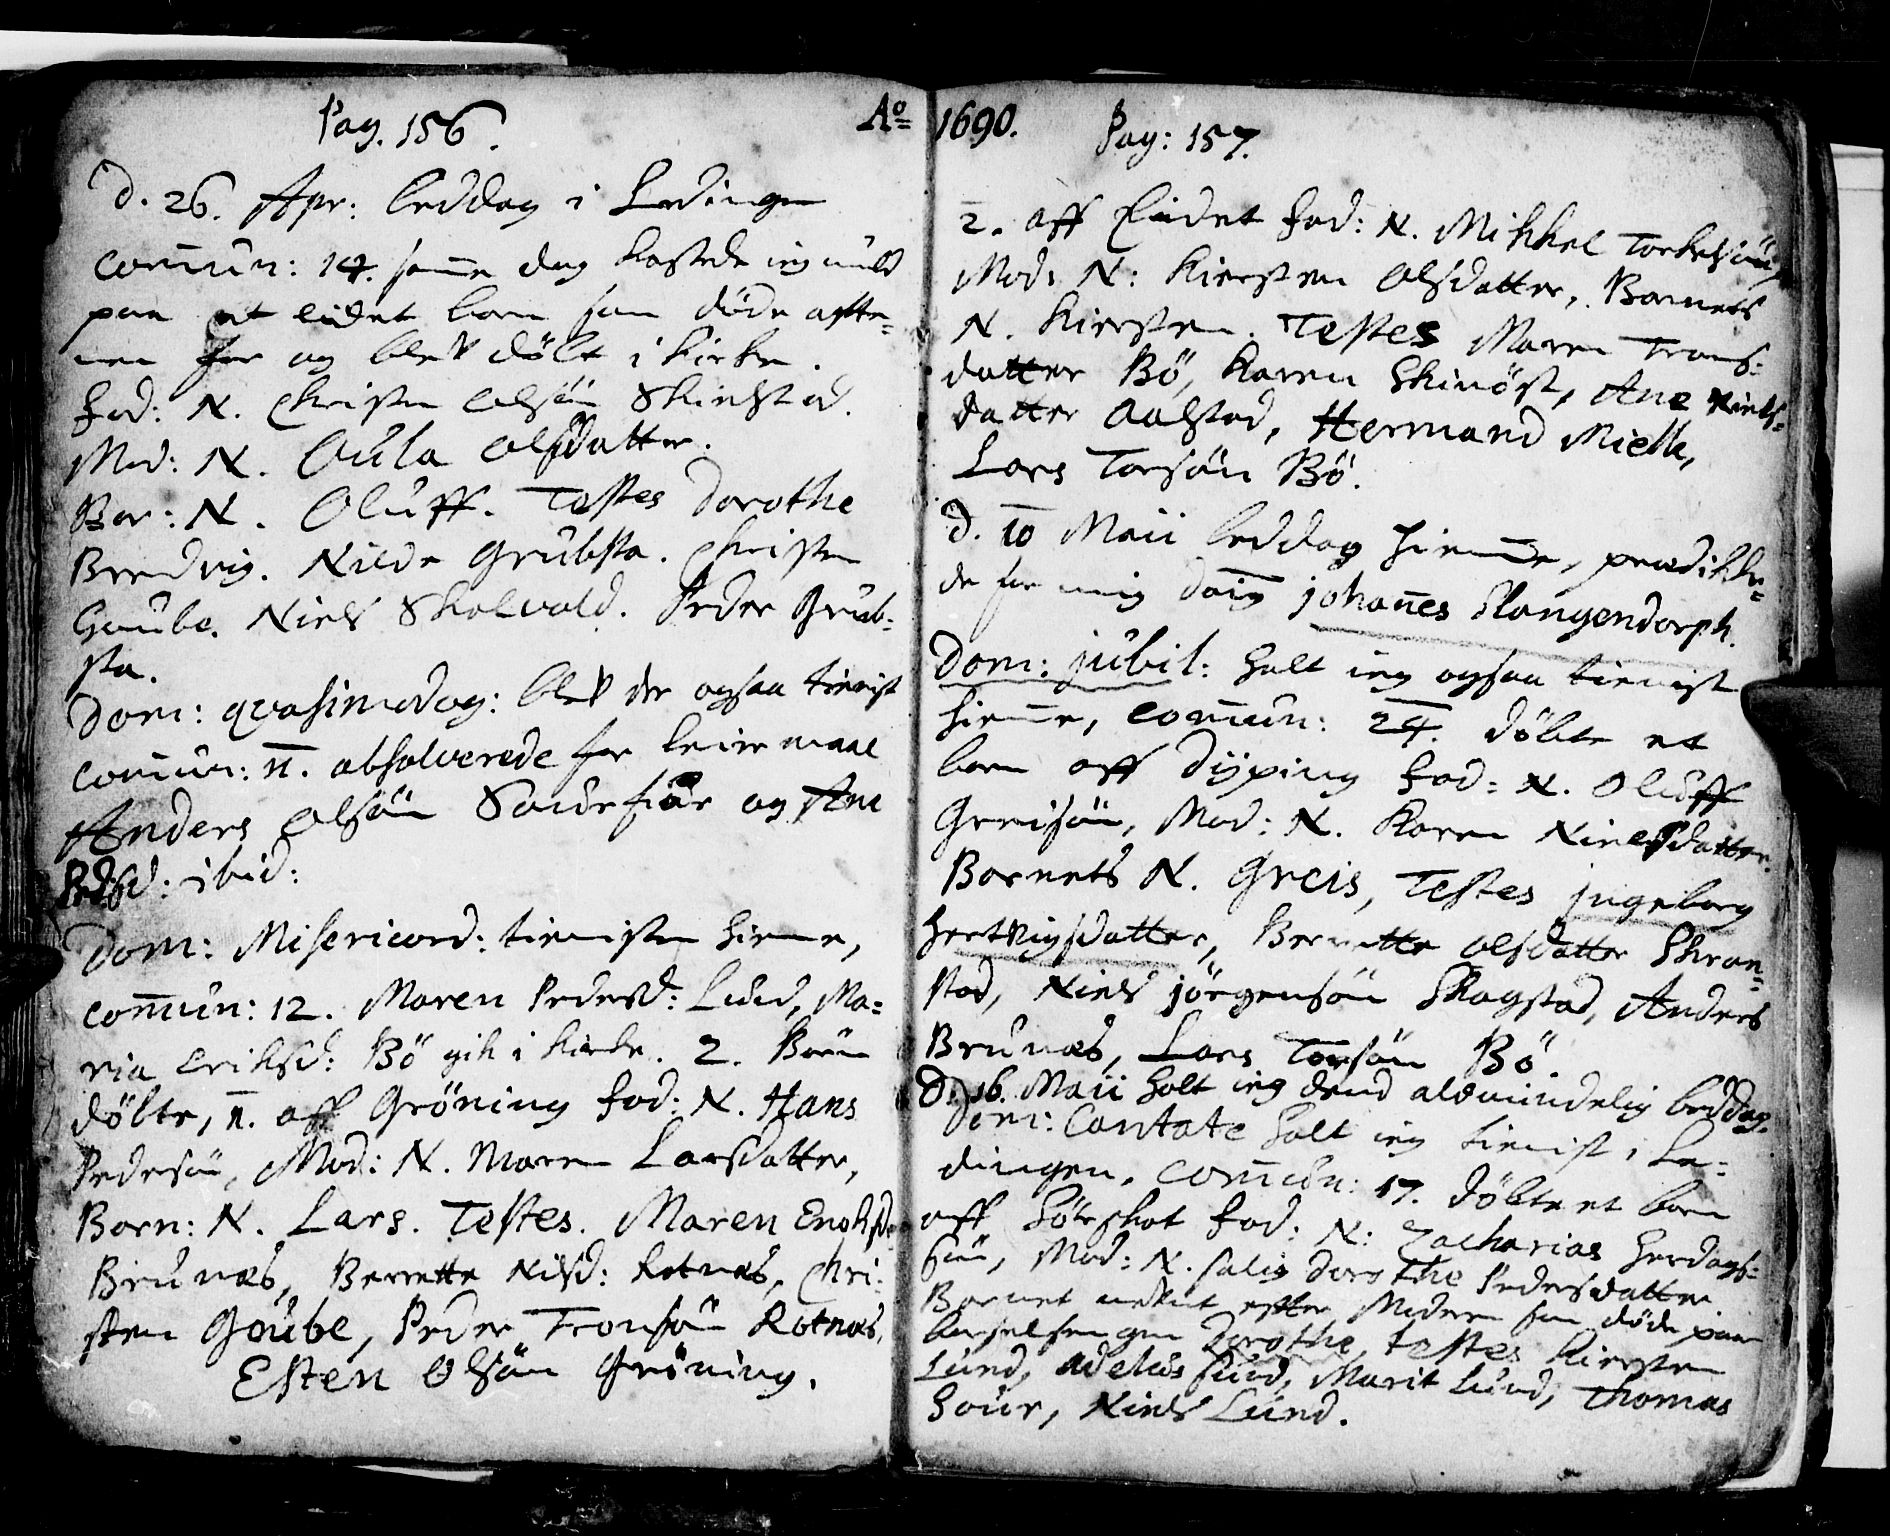 Pag. 156.
d. 26. Apr: beddag i Lødingen
com̄un: 14. sam̄e dag kastede ieg muld
paa et lidet barn som døde affte=
nen før og blev døbt i kirke.
Fad: N. Christen Olsön Skielstad.
Mod: N. Oula Olsdatter.
Bar: N. Oluff. Testes Dorothe
Bredvig. Nilde Grubsta. Christen
Goube. Niels Skolvold. Peder Grub=
sta.
Dom: qvasimodog: blev der ogsaa tienist
com̄un: 11. absolverede for leiermaal
Anders Olsön og Ane
Pedsd: ibid:
Dom: Misericord: tienisten hieme,
com̄un: 12. Maren Pedersd: Lund, Ma=
ria Eriksd: Bö gik i kirke. 2. Börn
döbte, 1. aff Gröning Fad: N. Hans
Pedersön, Mod: N. Maren Larsdatter,
Barn: N. Lars. Testes. Maren Enoksd:
Brunæs, Berrette Nilsd: Rotnæs, Chri=
sten Goube, Peder Tronsön Rotnæs,
Esten Olsön Gröning.
Aº 1690.
Pag: 157.
2. aff Eidet Fad: N. Mikkel Torkelsön,
Mod: N: Kiersten Olsdatter, Barnets
N. Kiersten. Testes Maren Trons=
datter Bö, Karen Skinöst, Ane Niels=
datter Aalstad, Hermand Mielle,
Lars Torsön Bö.
D. 10 Maii beddag hiem̄e, prædikke=
de for mig Johan̄es Slangendorph.
Dom: jubil: holt ieg ogsaa tienist
hiem̄e, com̄un: 24. döbte et
barn aff Dÿping Fad: N. Oluff
Greisön, Mod: N. Karen Nielsdatter.
Barnets N. Greis, Testes Jngeborg
Hertvigsdatter, Berrette Olsdatter Skran=
stad, Niels Jörgensön Skagstad, Anders
Brunæs, Lars Torsön Bö.
D. 16. Maii holt ieg dend almindelig beddag.
Dom: Cantate holt ieg tienist i Lø=
dingen, com̄un: 17. döbte et barn
aff Fad: N: Zacharias Herdags=
sön, Mod: N. salig Dorothe Pedersdatter.
Barnet nevnt effter Moderen som døde paa
barselsengen Dorothe, testes Kiersten
Lund, Adelus Lund, Marit Lund, Thomas
Niels Lund.